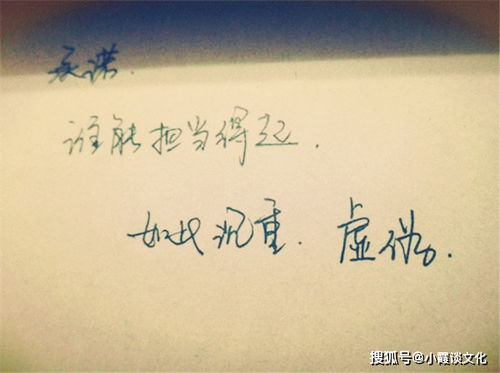 承诺.
谁能担当得起.
如此沉重. 虚伪.
搜狐号@小霞谈文化